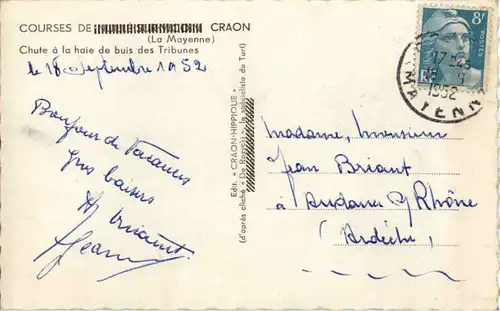 COURSES DE CRAON
(La Mayenne)
Chute à la haie de buis des Tribunes
le 18 Septembre 1952
Bonjour de Vacances
gros baisers
Jean
Edit. « CRAON-HIPPIQUE »
(d'après cliché « De Rozycki », le spécialiste du Turf)
8F
POSTES
17 H
18 - 9
1952
MAYENNE
Madame, Monsieur
Jean Briant
à Andance s/ Rhône
(Ardèche)